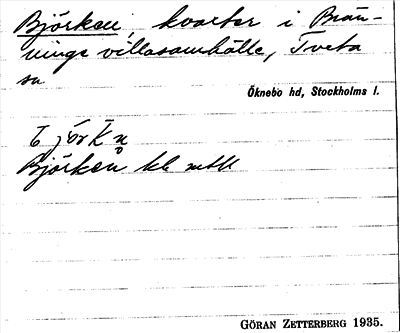 Björken, kvarter i Brän-
ninge villasamhälle, Tveta
sn
Öknebo hd, Stockholms l.
Björken kb mtlk
GÖRAN ZETTERBERG 1935.